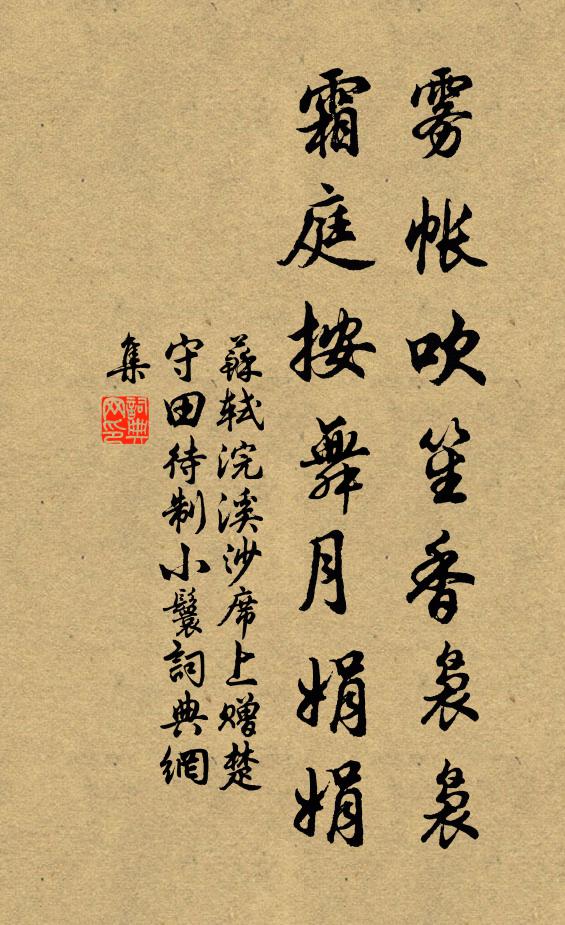 雾帐吹笙香袅袅
霜庭按舞月娟娟
蘇軾浣溪沙席上赠楚
守田待制小鬟詞典網
集
詞典网印